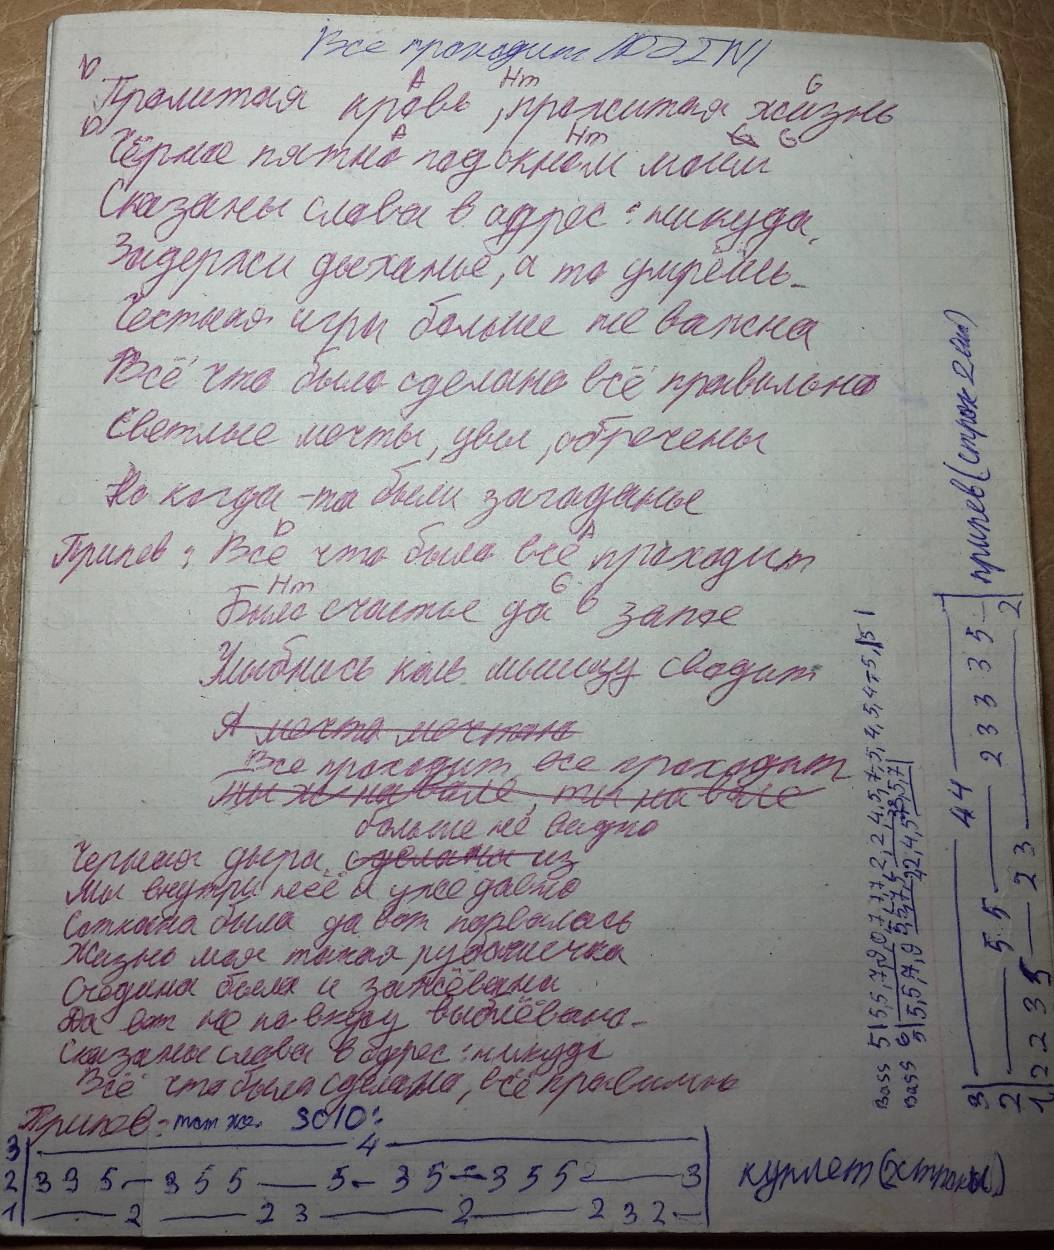 Всё проходит
D A Hm G
Пролитая кровь, прожитая жизнь
D A Hm G G
Чёрное пятно под окном моим
Сказаны слова в адрес: никуда,
Задержи дыханье, а то умрёшь
Честная игра больше не важна
Всё что было сделано всё правильно
Светлые мечты, увы, обречены
Но когда-то были загаданы
D A
Припев: Всё что было всё проходит
Hm G
Было счастье да в запое
Улыбнись коль мышцу сводит
А мечта мечтою
Все проходит, все проходит
больше не видно
Черная дыра, сделаны из
Мы внутри неё и уже давно
Соткана была да вот порвалась
Жизнь моя такая рубашечка
Съедена была и зажёвана
Да вот не по вкусу выплёвана
Сказаны слова в адрес: никуда
Всё что было сделано, всё правильно
Припев: тот же. Solo:
3 ———— 4 ————
2 3 3 5 — 3 5 5 — 5 — 3 5 — 3 5 5 — 3
1 — 2 — 2 3 — 2 — 2 3 2 —
куплет (2 строки)
Bass 5
Bass 6
3 —— 44 ——
2 —— 5 5 —— 2 3 3 3 5 —
1 2 2 3 5 — 2 3 —— 2
припев (строк 2)